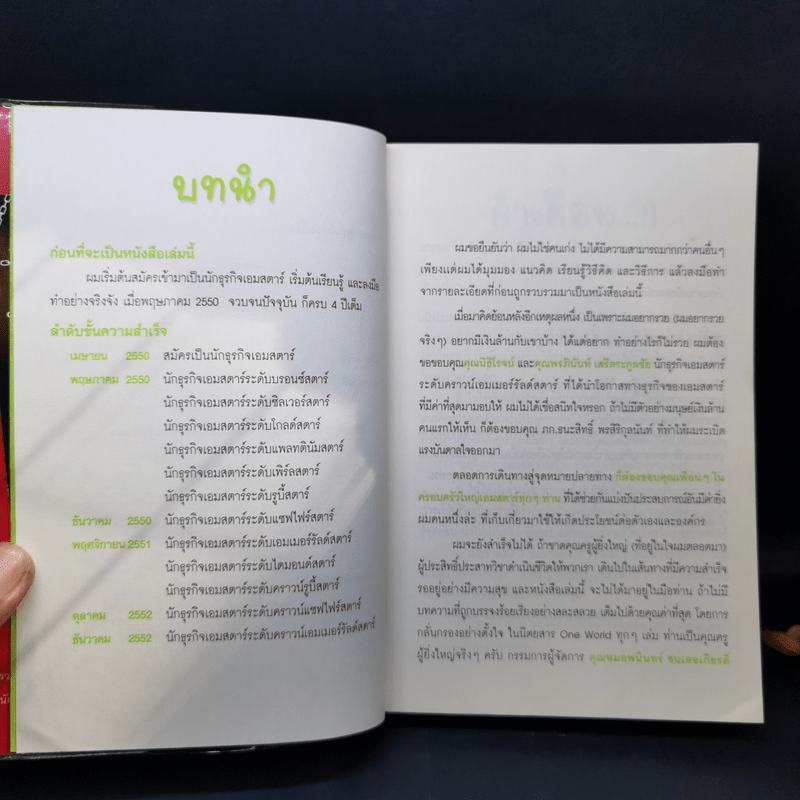 บทนำ
ก่อนที่จะเป็นหนังสือเล่มนี้
ผมเริ่มต้นสมัครเข้ามาเป็นนักธุรกิจเอมสตาร์ เริ่มต้นเรียนรู้ และลงมือ
ทำอย่างจริงจัง เมื่อพฤษภาคม 2550 จวบจนปัจจุบัน ก็ครบ 4 ปีเต็ม
ลำดับขั้นความสำเร็จ
เมษายน 2550 สมัครเป็นนักธุรกิจเอมสตาร์
พฤษภาคม 2550 นักธุรกิจเอมสตาร์ระดับบรอนซ์สตาร์
นักธุรกิจเอมสตาร์ระดับซิลเวอร์สตาร์
นักธุรกิจเอมสตาร์ระดับโกลด์สตาร์
นักธุรกิจเอมสตาร์ระดับแพลทตินัมสตาร์
นักธุรกิจเอมสตาร์ระดับเพิร์ลสตาร์
นักธุรกิจเอมสตาร์ระดับรูบี้สตาร์
ธันวาคม 2550 นักธุรกิจเอมสตาร์ระดับแซฟไฟร์สตาร์
พฤศจิกายน 2551 นักธุรกิจเอมสตาร์ระดับเอมเมอร์รัลด์สตาร์
นักธุรกิจเอมสตาร์ระดับไดมอนด์สตาร์
นักธุรกิจเอมสตาร์ระดับคราวน์รูบี้สตาร์
ตุลาคม 2552 นักธุรกิจเอมสตาร์ระดับคราวน์แซฟไฟร์สตาร์
ธันวาคม 2552 นักธุรกิจเอมสตาร์ระดับคราวน์เอมเมอร์รัลด์สตาร์
ผมขอยืนยันว่า ผมไม่ใช่คนเก่ง ไม่ได้มีความสามารถมากกว่าคนอื่นๆ
เพียงแต่ผมได้มุมมอง แนวคิด เรียนรู้วิธีคิด และวิธีการ แล้วลงมือทำ
จากรายละเอียดที่ก่อนถูกรวบรวมมาเป็นหนังสือเล่มนี้
เมื่อมาคิดย้อนหลังอีกเหตุผลหนึ่ง เป็นเพราะผมอยากรวย (ผมอยากรวย
จริงๆ) อยากมีเงินล้านกับเขาบ้าง ได้แต่อยาก ทำอย่างไรก็ไม่รวย ผมต้อง
ขอขอบคุณคุณนิธิโรจน์ และคุณพรภินันท์ เศรีตระกูลชัย นักธุรกิจเอมสตาร์
ระดับคราวน์เอมเมอร์รัลด์สตาร์ ที่ได้นำโอกาสทางธุรกิจของเอมสตาร์
ที่มีค่าที่สุดมามอบให้ ผมไม่ได้เชื่อสนิทใจหรอก ถ้าไม่มีตัวอย่างมนุษย์เงินล้าน
คนแรกให้เห็น ก็ต้องขอบคุณ ภก.ธนะสิทธิ์ พรสิริกุลนันท์ ที่ทำให้ผมระเบิด
แรงบันดาลใจออกมา
ตลอดการเดินทางสู่จุดหมายปลายทาง ก็ต้องขอบคุณเพื่อนๆ ใน
ครอบครัวใหญ่เอมสตาร์ทุกๆ ท่าน ที่ได้ช่วยกันแบ่งปันประสบการณ์อันมีค่ายิ่ง
ผมคนหนึ่งล่ะ ที่เก็บเกี่ยวมาใช้ให้เกิดประโยชน์ต่อตัวเองและองค์กร
ผมจะยังสำเร็จไม่ได้ ถ้าขาดคุณครูผู้ยิ่งใหญ่ (ที่อยู่ในใจผมตลอดมา)
ผู้ประสิทธิ์ประสาทวิชาดำเนินชีวิตให้พวกเรา เดินไปในเส้นทางที่มีความสำเร็จ
รออยู่อย่างมีความสุข และหนังสือเล่มนี้ จะไม่ได้มาอยู่ในมือท่าน ถ้าไม่มี
บทความที่ถูกบรรจงร้อยเรียงอย่างสละสลวย เต็มไปด้วยคุณค่าที่สุด โดยการ
กลั่นกรองอย่างตั้งใจ ในนิตยสาร One World ทุกๆ เล่ม ท่านเป็นคุณครู
ผู้ยิ่งใหญ่จริงๆ ครับ กรรมการผู้จัดการ คุณหมอพนินทร์ ชนเลอเกียรติ